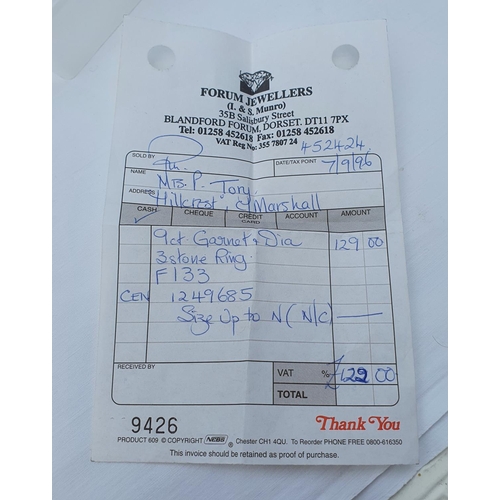 FORUM JEWELLERS
(I. & S. Munro)
35B Salisbury Street
BLANDFORD FORUM, DORSET. DT11 7PX
Tel: 01258 452618 Fax: 01258 452618
VAT Reg No: 355 7807 24
452424.
SOLD BY
DATE/TAX POINT 7/9/96
NAME Mrs. P. Tory
ADDRESS Hillcrest, Marshall
CASH CHEQUE CREDIT CARD ACCOUNT AMOUNT
✓
9ct Garnet & Dia 129 00
3 stone Ring.
F133
CEN 1249685
Size Up to N (N/C) —
RECEIVED BY
VAT %
TOTAL
£129 00
9426
Thank You
PRODUCT 609 © COPYRIGHT NEBS ® Chester CH1 4QU. To Reorder PHONE FREE 0800-616350
This invoice should be retained as proof of purchase.